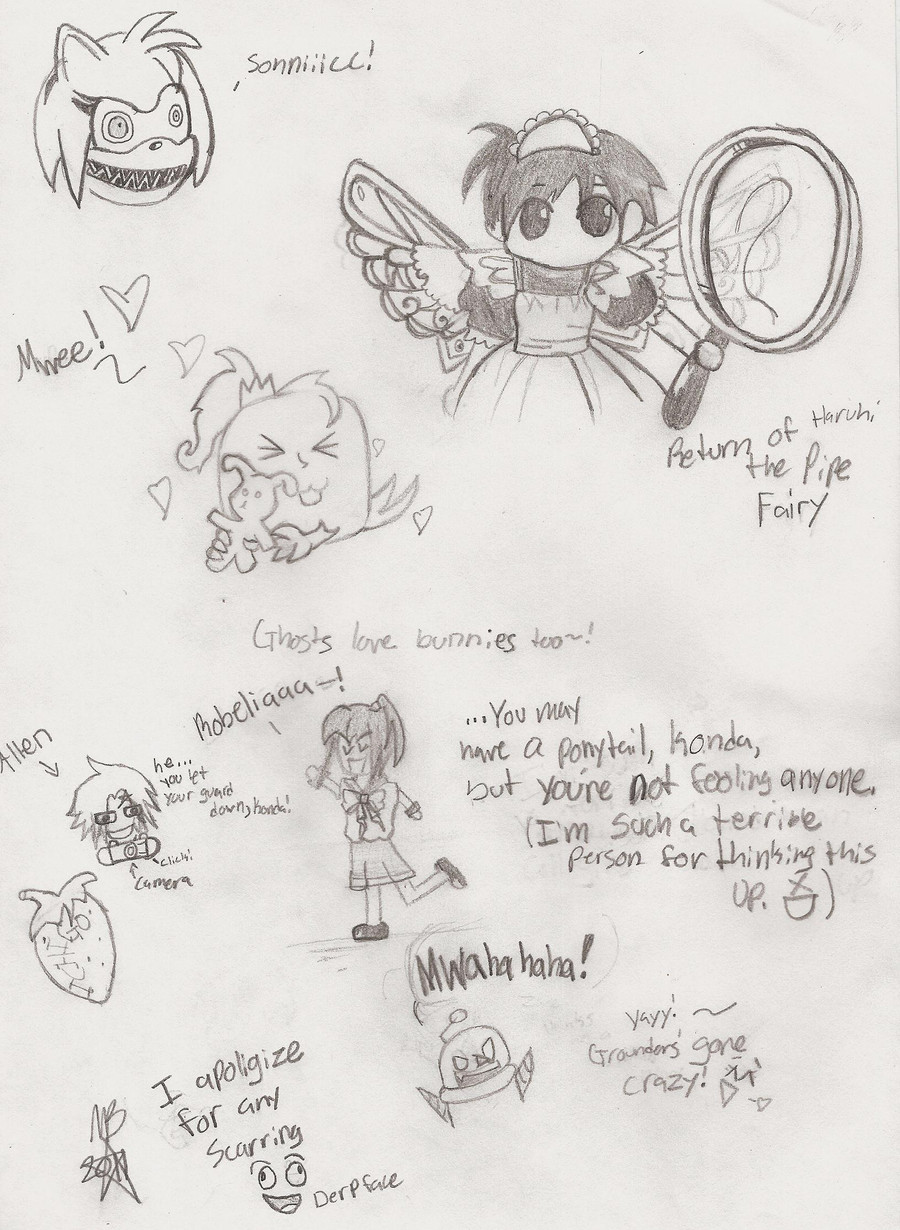 Sonniiicc!
Mwee! ~
Return of Haruhi
the Pipe
Fairy
Ghosts love bunnies too~!
Allen
he...
you let
your guard
down, Kanda!
click!
camera
Robeliaaa~!
...You may
have a ponytail, Kanda,
but you're not fooling anyone.
(I'm such a terrible
person for thinking this
up. XD)
ICHIGO!
MWahahaha!
yayy! ~
Grounders' gone
crazy!
I apoligize
for any
scarring
Derpface
NB
2011